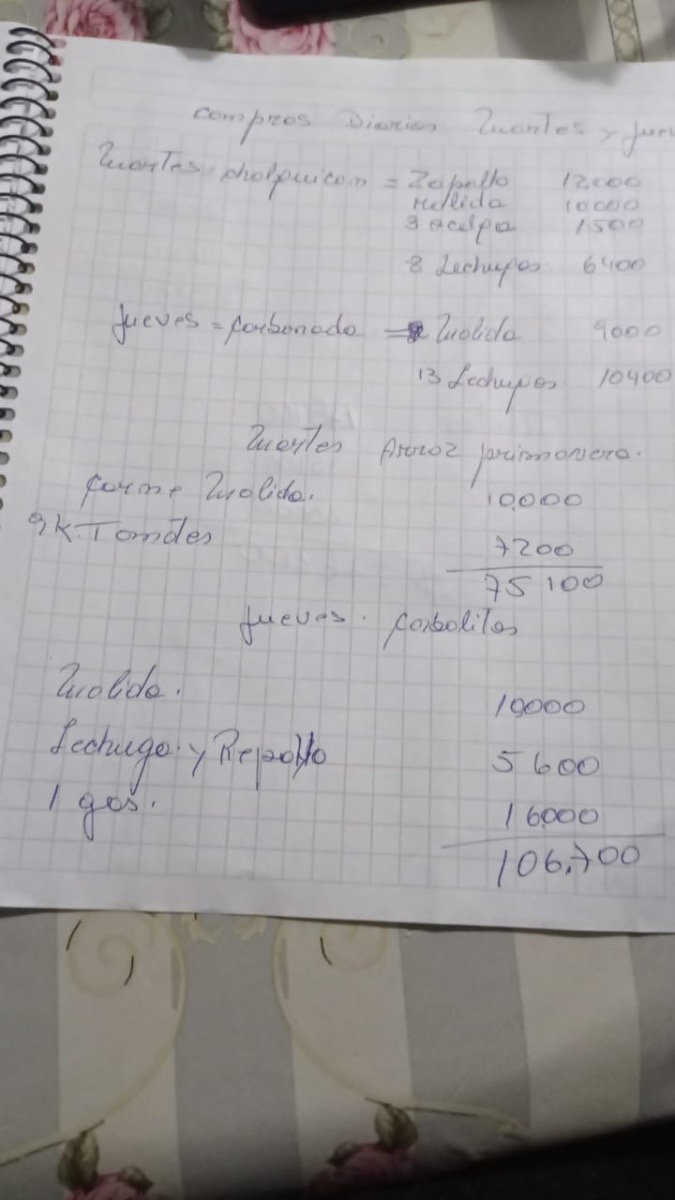 Compras Diarias Martes y Jue
Martes = charquican = Zapallo 12000
Mollida 10000
3 acelga 1500
8 Lechugas 6400
Jueves = Carbonada = Molida 9000
13 Lechugas 10400
Martes Arroz primavera.
Carne Molida. 10.000
9 K. Tomates 7200
75100
Jueves. Carbolitos
Molida. 10000
Lechuga y Repollo 5600
1 gas. 16000
106.700